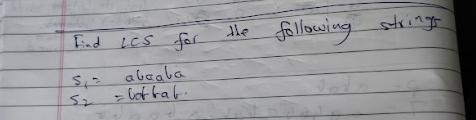 Find LCS for the following strings
S1 = abaaba
S2 =